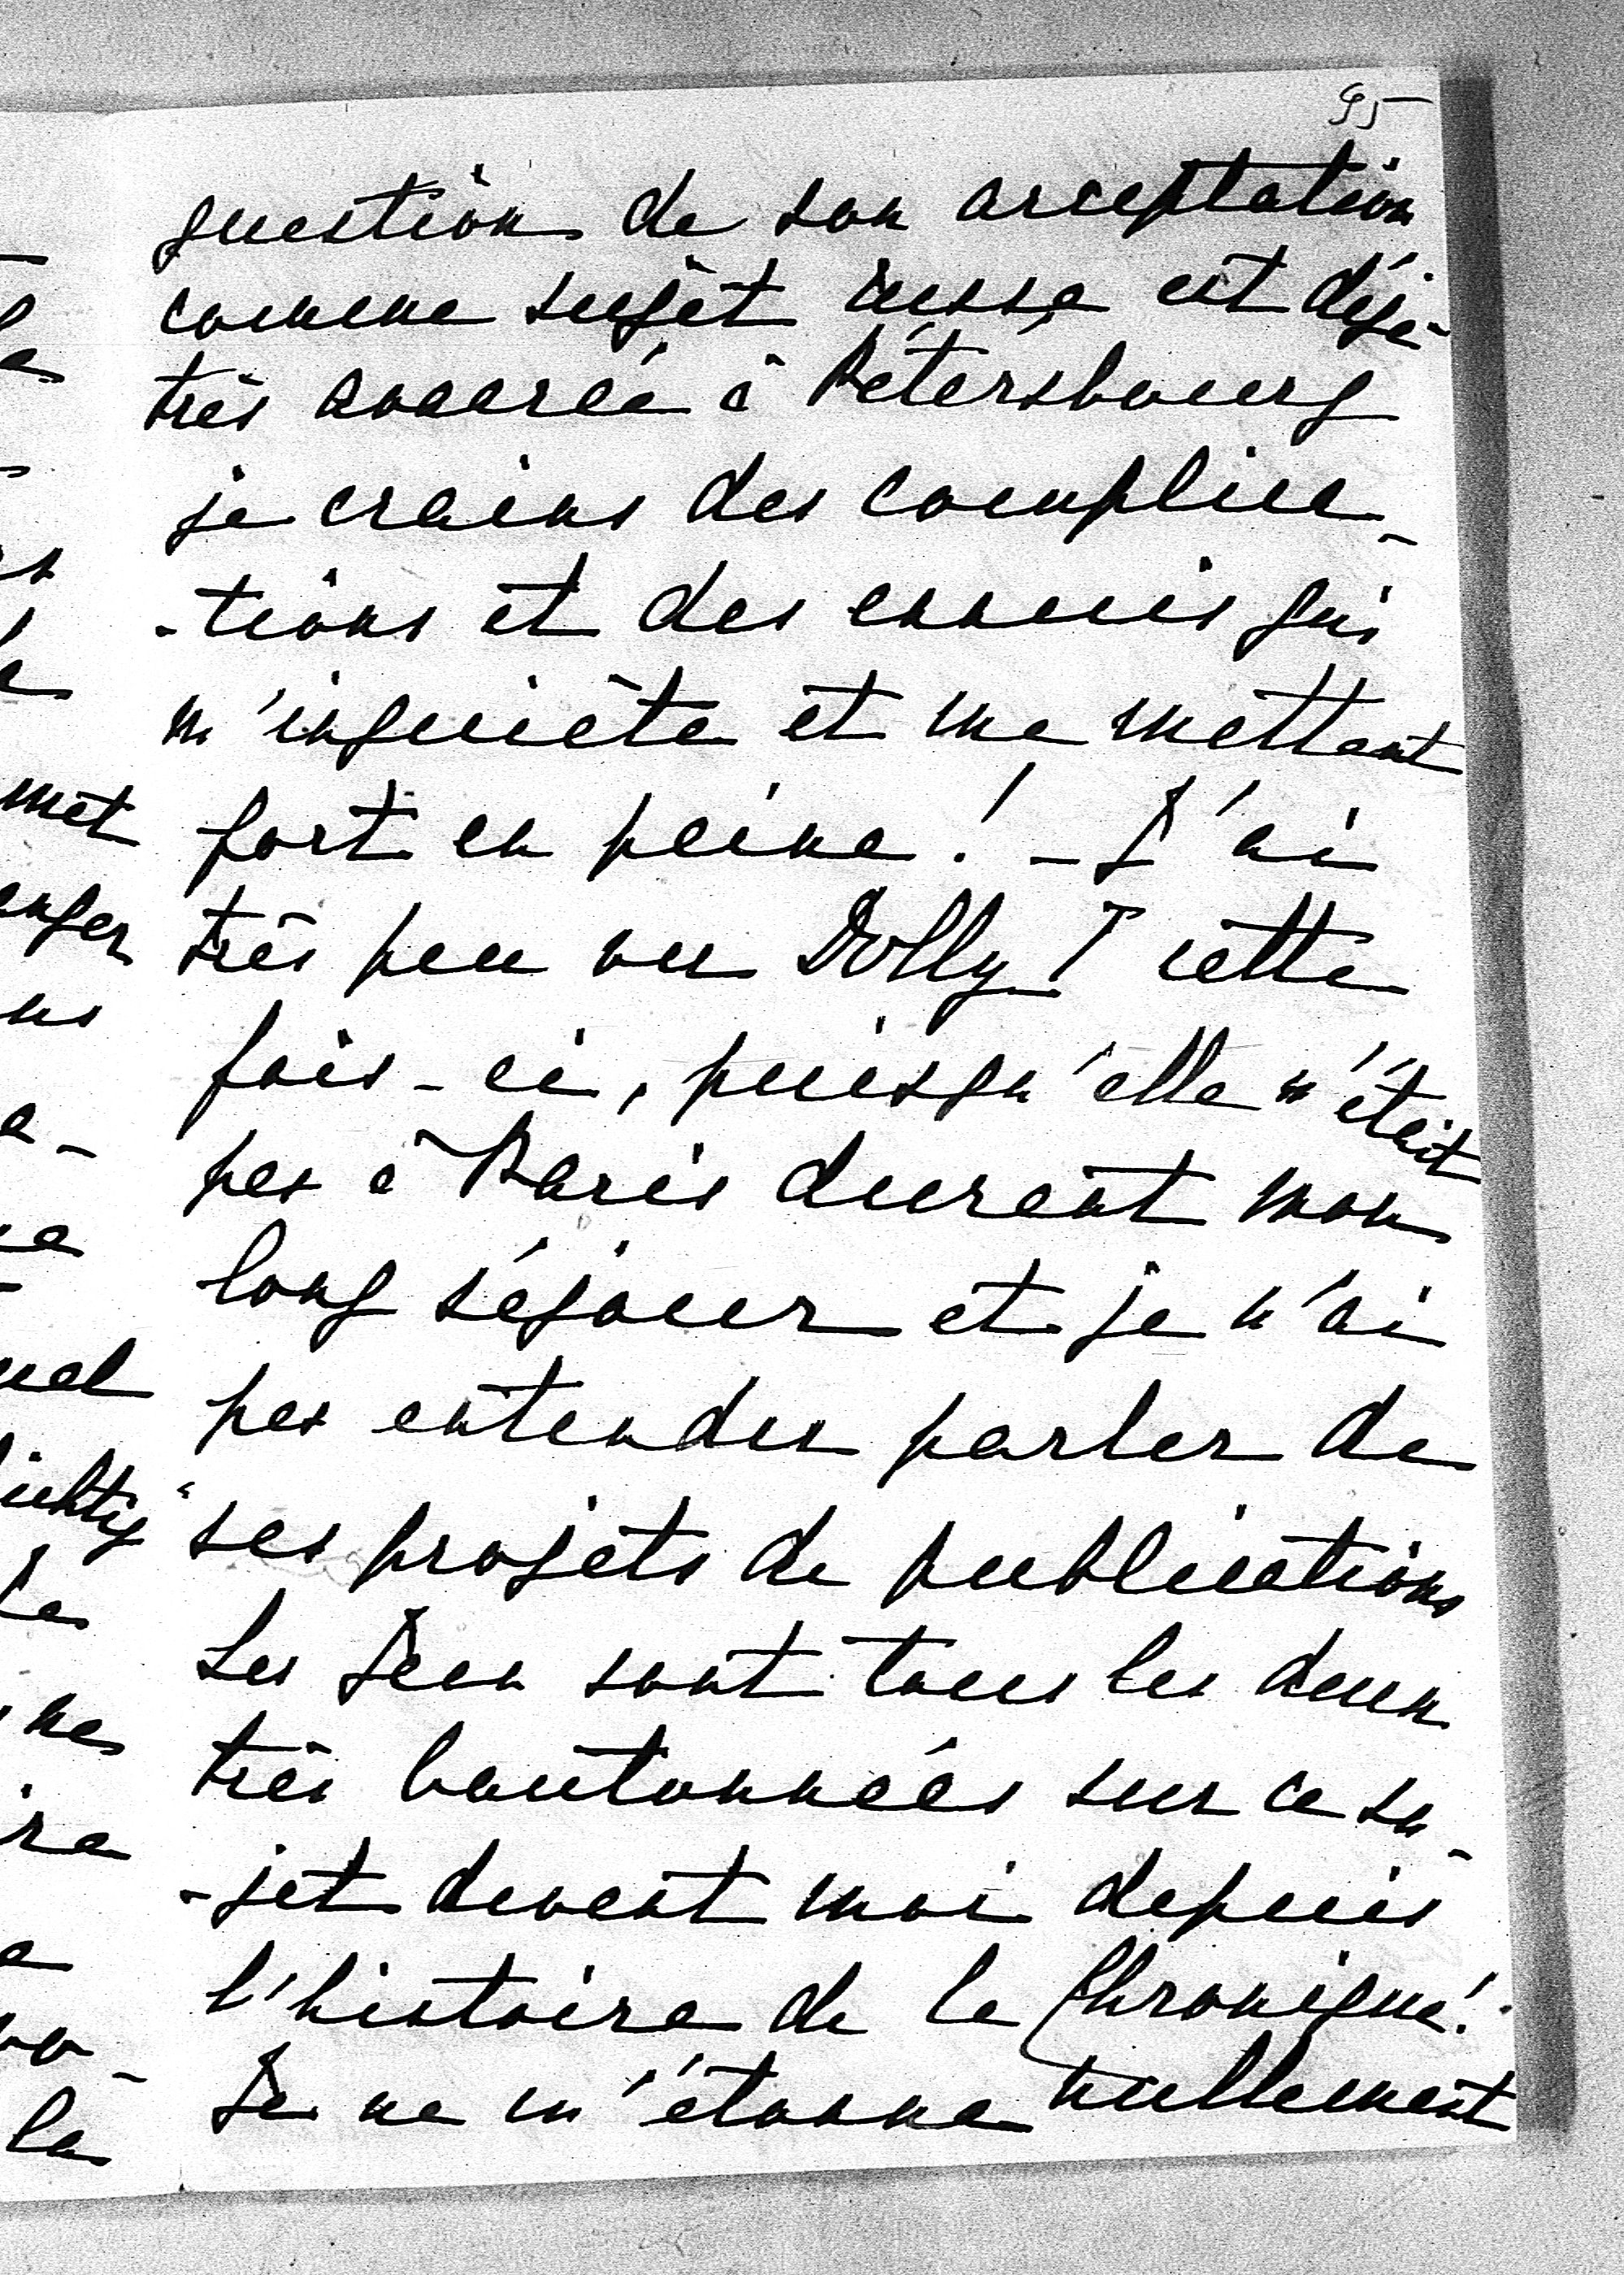 95
question de son acceptation
comme sujet russe est déjà
très avancée à Pétersbourg
je crains des complica-
-tions et des ennuis qui
m'inquiète et me mettent
fort en peine! – J'ai
très peu vu Dolly T cette
fois-ci, puisqu'elle n'était
pas à Paris durant mon
long séjour et je n'ai
pas entendu parler de
ses projets de publications
Les Jean sont tous les deux
très boutonnés sur ce su-
-jet devant moi depuis
l'histoire de la Chronique!
Je ne m'étonne nullement
met
la